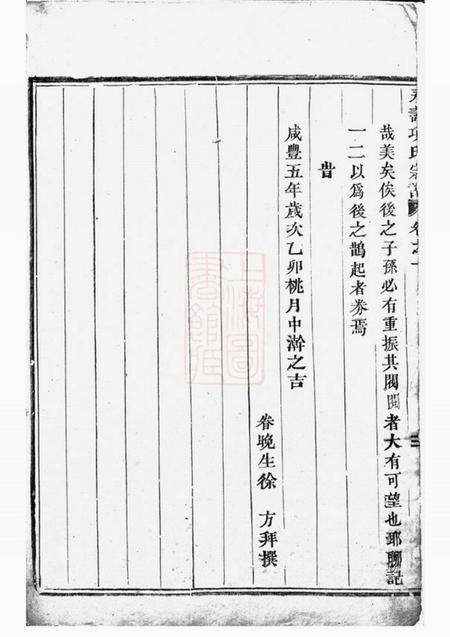 項氏宗譜 卷之一
哉美矣俟後之子孫必有重振其閥閱者大有可望也耶聊記
一二以爲後之鵲起者券焉
旹
咸豐五年歲次乙卯桃月中澣之吉
眷晚生徐 方拜撰
上海圖書館藏